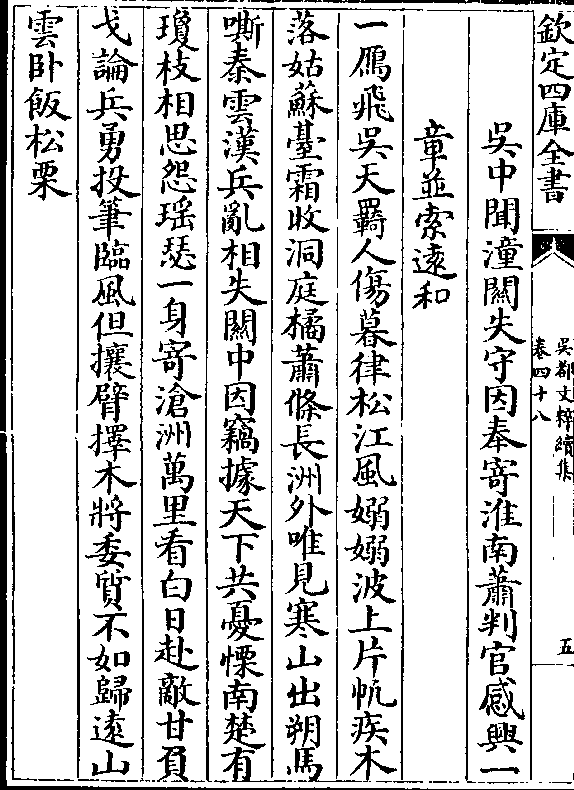 欽定四庫全書
吳都文粹續集
卷四十八
五
吳中聞潼關失守因奉寄淮南蕭判官感興一
章並索遠和
一鴈飛吳天羇人傷暮律松江風嫋嫋波上片帆疾木
落姑蘇臺霜收洞庭橘蕭條長洲外唯見寒山出朔馬
嘶秦雲漢兵亂相失關中因竊據天下共憂慄南楚有
瓊枝相思怨瑶瑟一身寄滄洲萬里看白日赴敵甘負
戈論兵勇投筆臨風但攘臂擇木將委質不如歸遠山
雲卧飯松栗